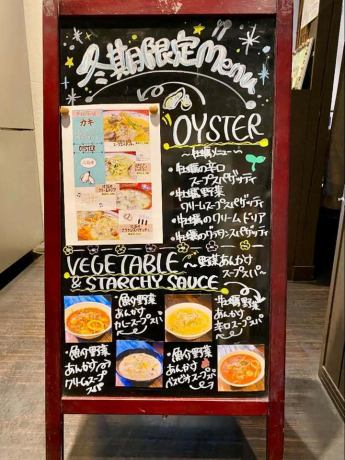 冬期限定Menu
カキ
OYSTER
OYSTER
〜牡蠣メニュー〜
・牡蠣の辛口
スープスパゲッティ
・牡蠣野菜
クリームスープスパゲッティ
・牡蠣のクリームドリア
・牡蠣のグラタンスパゲッティ
VEGETABLE
& STARCHY SAUCE
〜野菜あんかけ
スープスパ〜
・魚介野菜
あんかけ
カレースープスパ
・牡蠣野菜
あんかけ
辛口スープスパ
・魚介野菜
あんかけ
クリームスープ
スパ
・魚介野菜
あんかけ
スープスパ